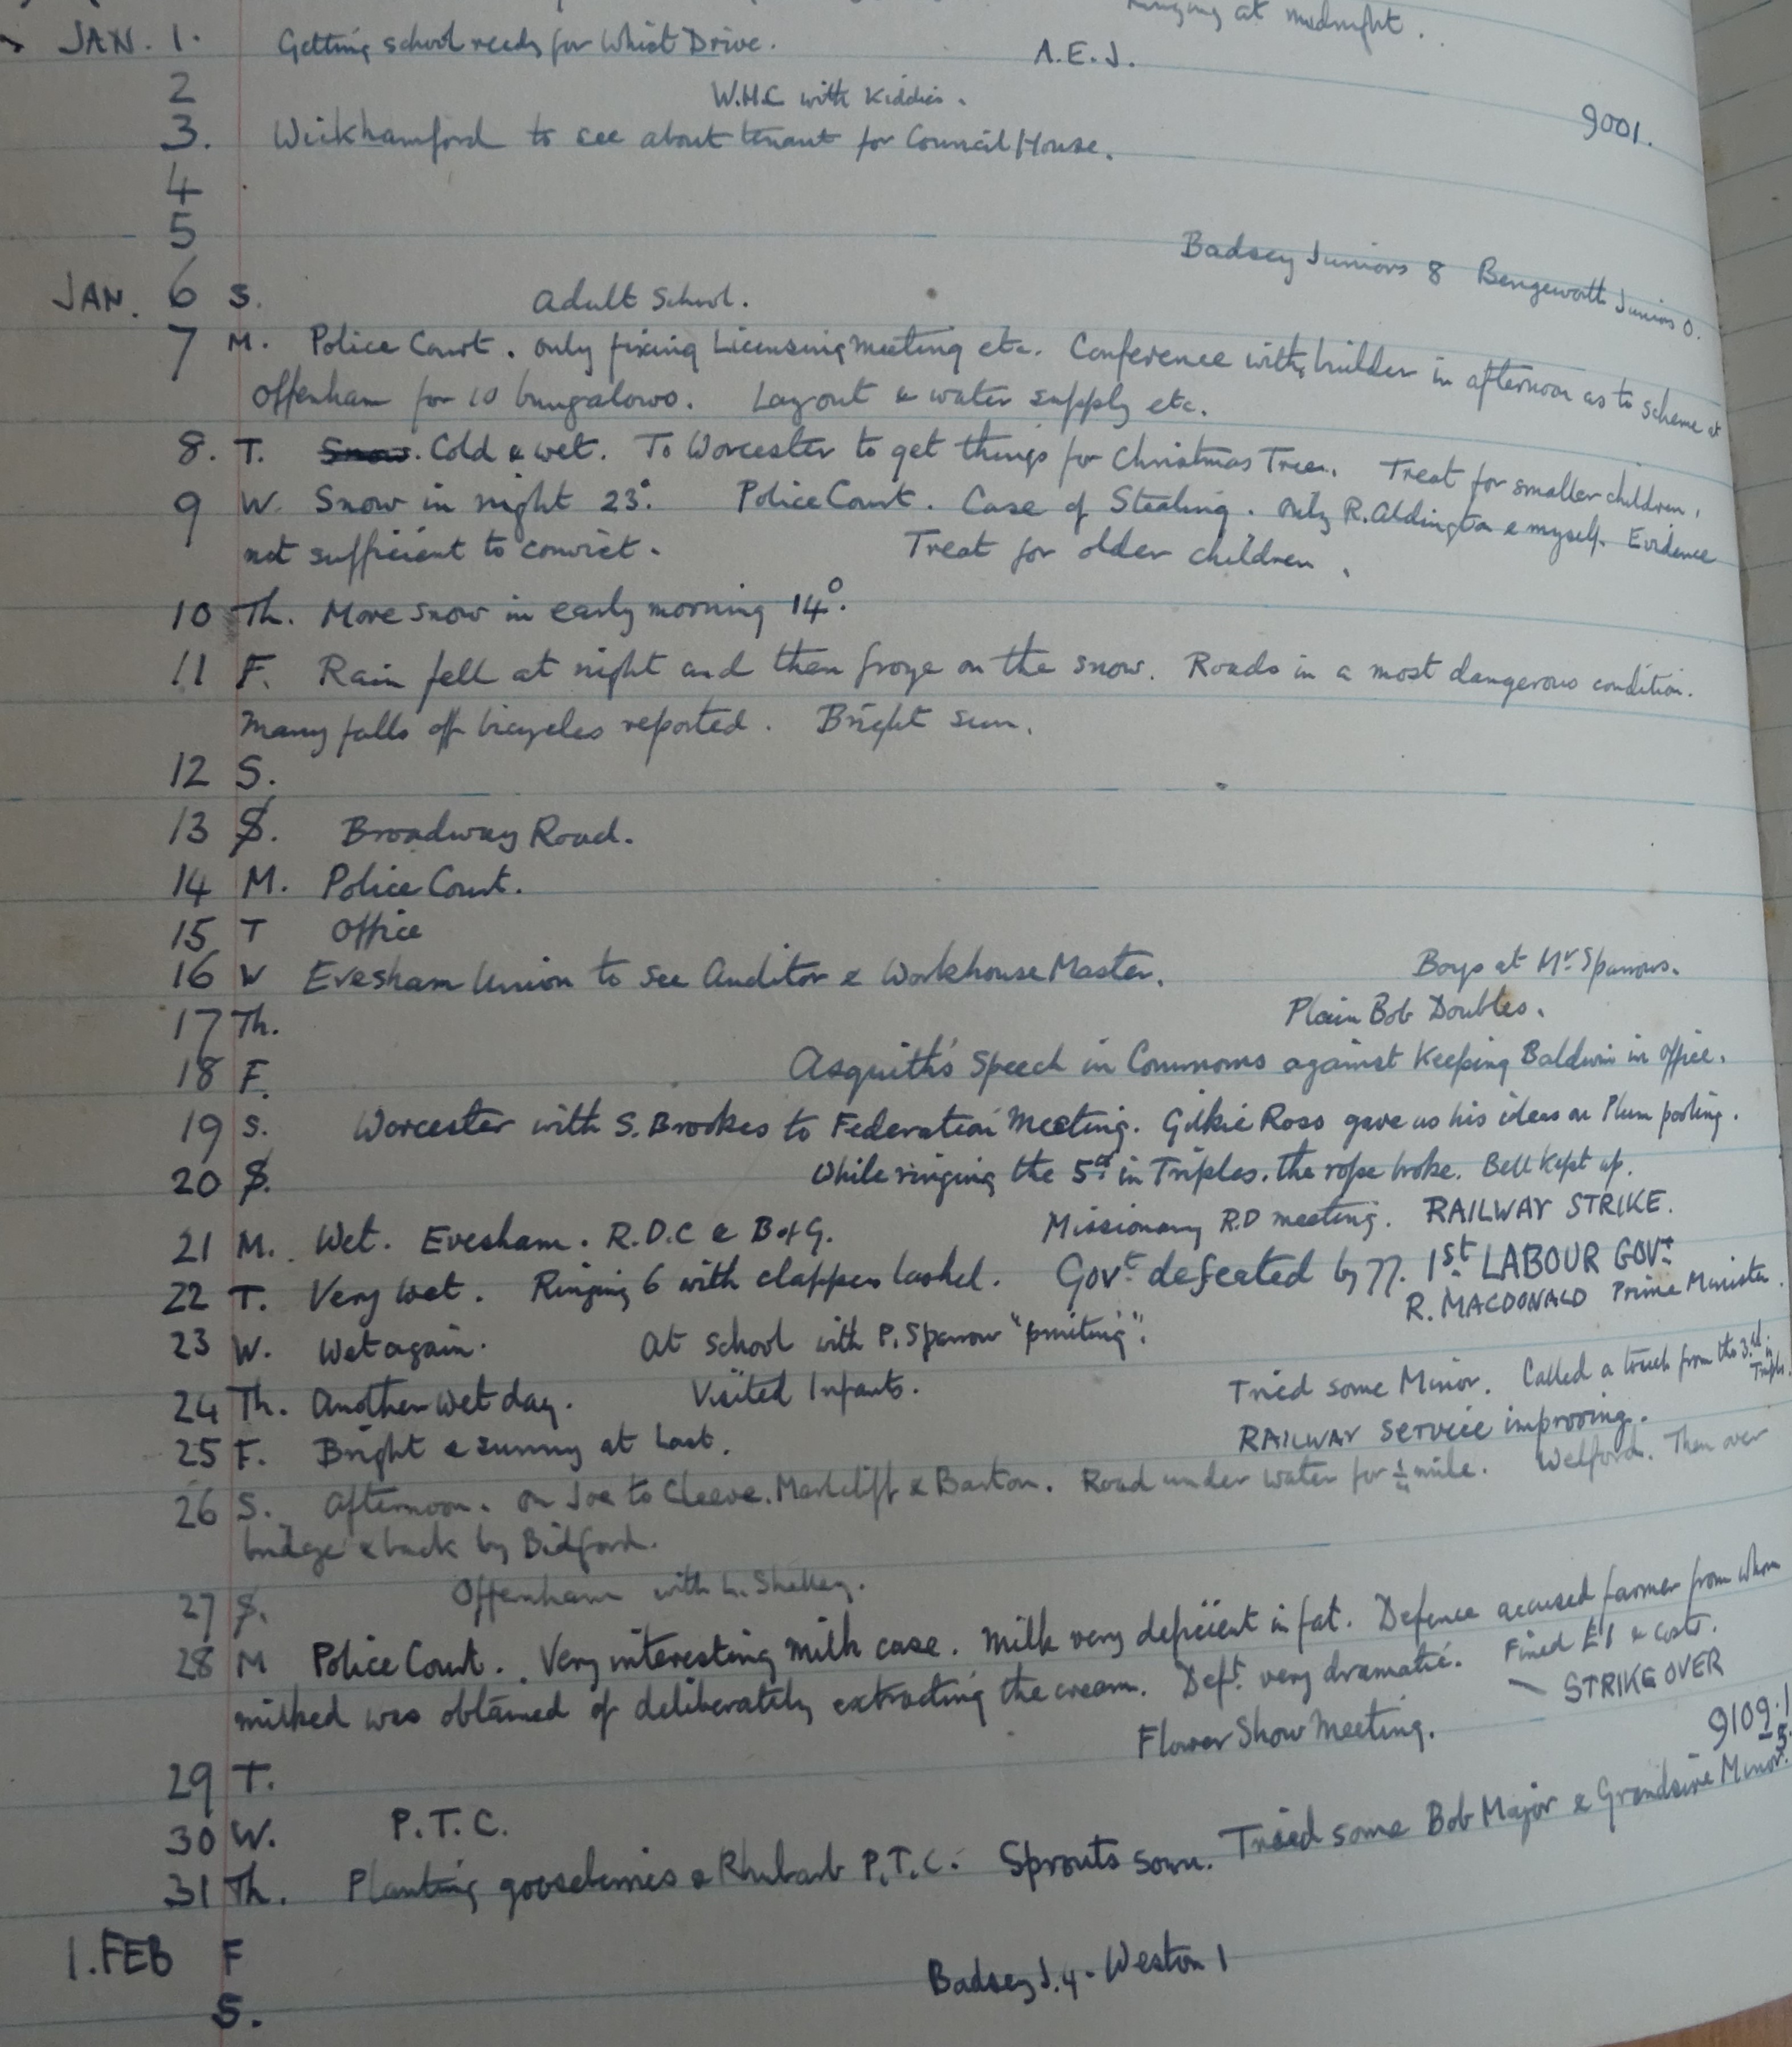 Ringing at midnight.
JAN. 1. Getting school ready for Whist Drive. A.E.J.
2 W.H.C with Kiddies.
3. Wickhamford to see about tenant for Council House. 9001.
4
5 Badsey Juniors 8 Bengeworth Juniors 0.
JAN. 6 S. Adult School.
7 M. Police Court. Only fixing Licensing Meeting etc. Conference with builder in afternoon as to scheme at
Offenham for 10 bungalows. Layout & water supply etc.
8. T. Snow. Cold & wet. To Worcester to get things for Christmas Tree. Treat for smaller children.
9 W. Snow in night 23°. Police Court. Case of Stealing. Only R. Aldington & myself. Evidence
not sufficient to convict. Treat for older children.
10 Th. More snow in early morning 14°.
11 F. Rain fell at night and then froze on the snow. Roads in a most dangerous condition.
Many falls off bicycles reported. Bright sun.
12 S.
13 S. Broadway Road.
14 M. Police Court.
15 T Office
16 W Evesham Union to see Auditor & Workhouse Master. Boys at Mr Sparrows.
17 Th. Plain Bob Doubles.
18 F. Asquith's Speech in Commons against Keeping Baldwin in Office.
19 S. Worcester with S. Brookes to Federation Meeting. Gilkie Ross gave us his ideas on Plum pooling.
20 S. While ringing the 5th in Triples, the rope broke. Bell kept up.
21 M. Wet. Evesham. R.D.C & B of G. Missionary R.D meeting. RAILWAY STRIKE.
22 T. Very wet. Ringing 6 with clappers lashed. Govt defeated by 77. 1st LABOUR GOVt
R. MACDONALD Prime Minister.
23 W. Wet again. At School with P. Sparrow "printing".
24 Th. Another wet day. Visited Infants. Tried some Minor. Called a touch from the 3rd in Triples.
25 F. Bright & sunny at last. RAILWAY Service improving.
26 S. Afternoon. On Joe to Cleeve, Marlcliff & Barton. Road under water for ¼ mile. Welford. Then over
bridge & back by Bidford.
27 S. Offenham with L. Shelley.
28 M Police Court. Very interesting milk case. Milk very deficient in fat. Defence accused farmer from whom
milked was obtained of deliberately extracting the cream. Deft. very dramatic. Fined £1 & costs.
— STRIKE OVER
29 T. Flower Show Meeting. 9109.1
30 W. P.T.C.
31 Th. Planting gooseberries & Rhubarb P.T.C. Sprouts sown. Tried some Bob Major & Grandsire Minor.
1. FEB F
S. Badsey J. 4 - Weston 1